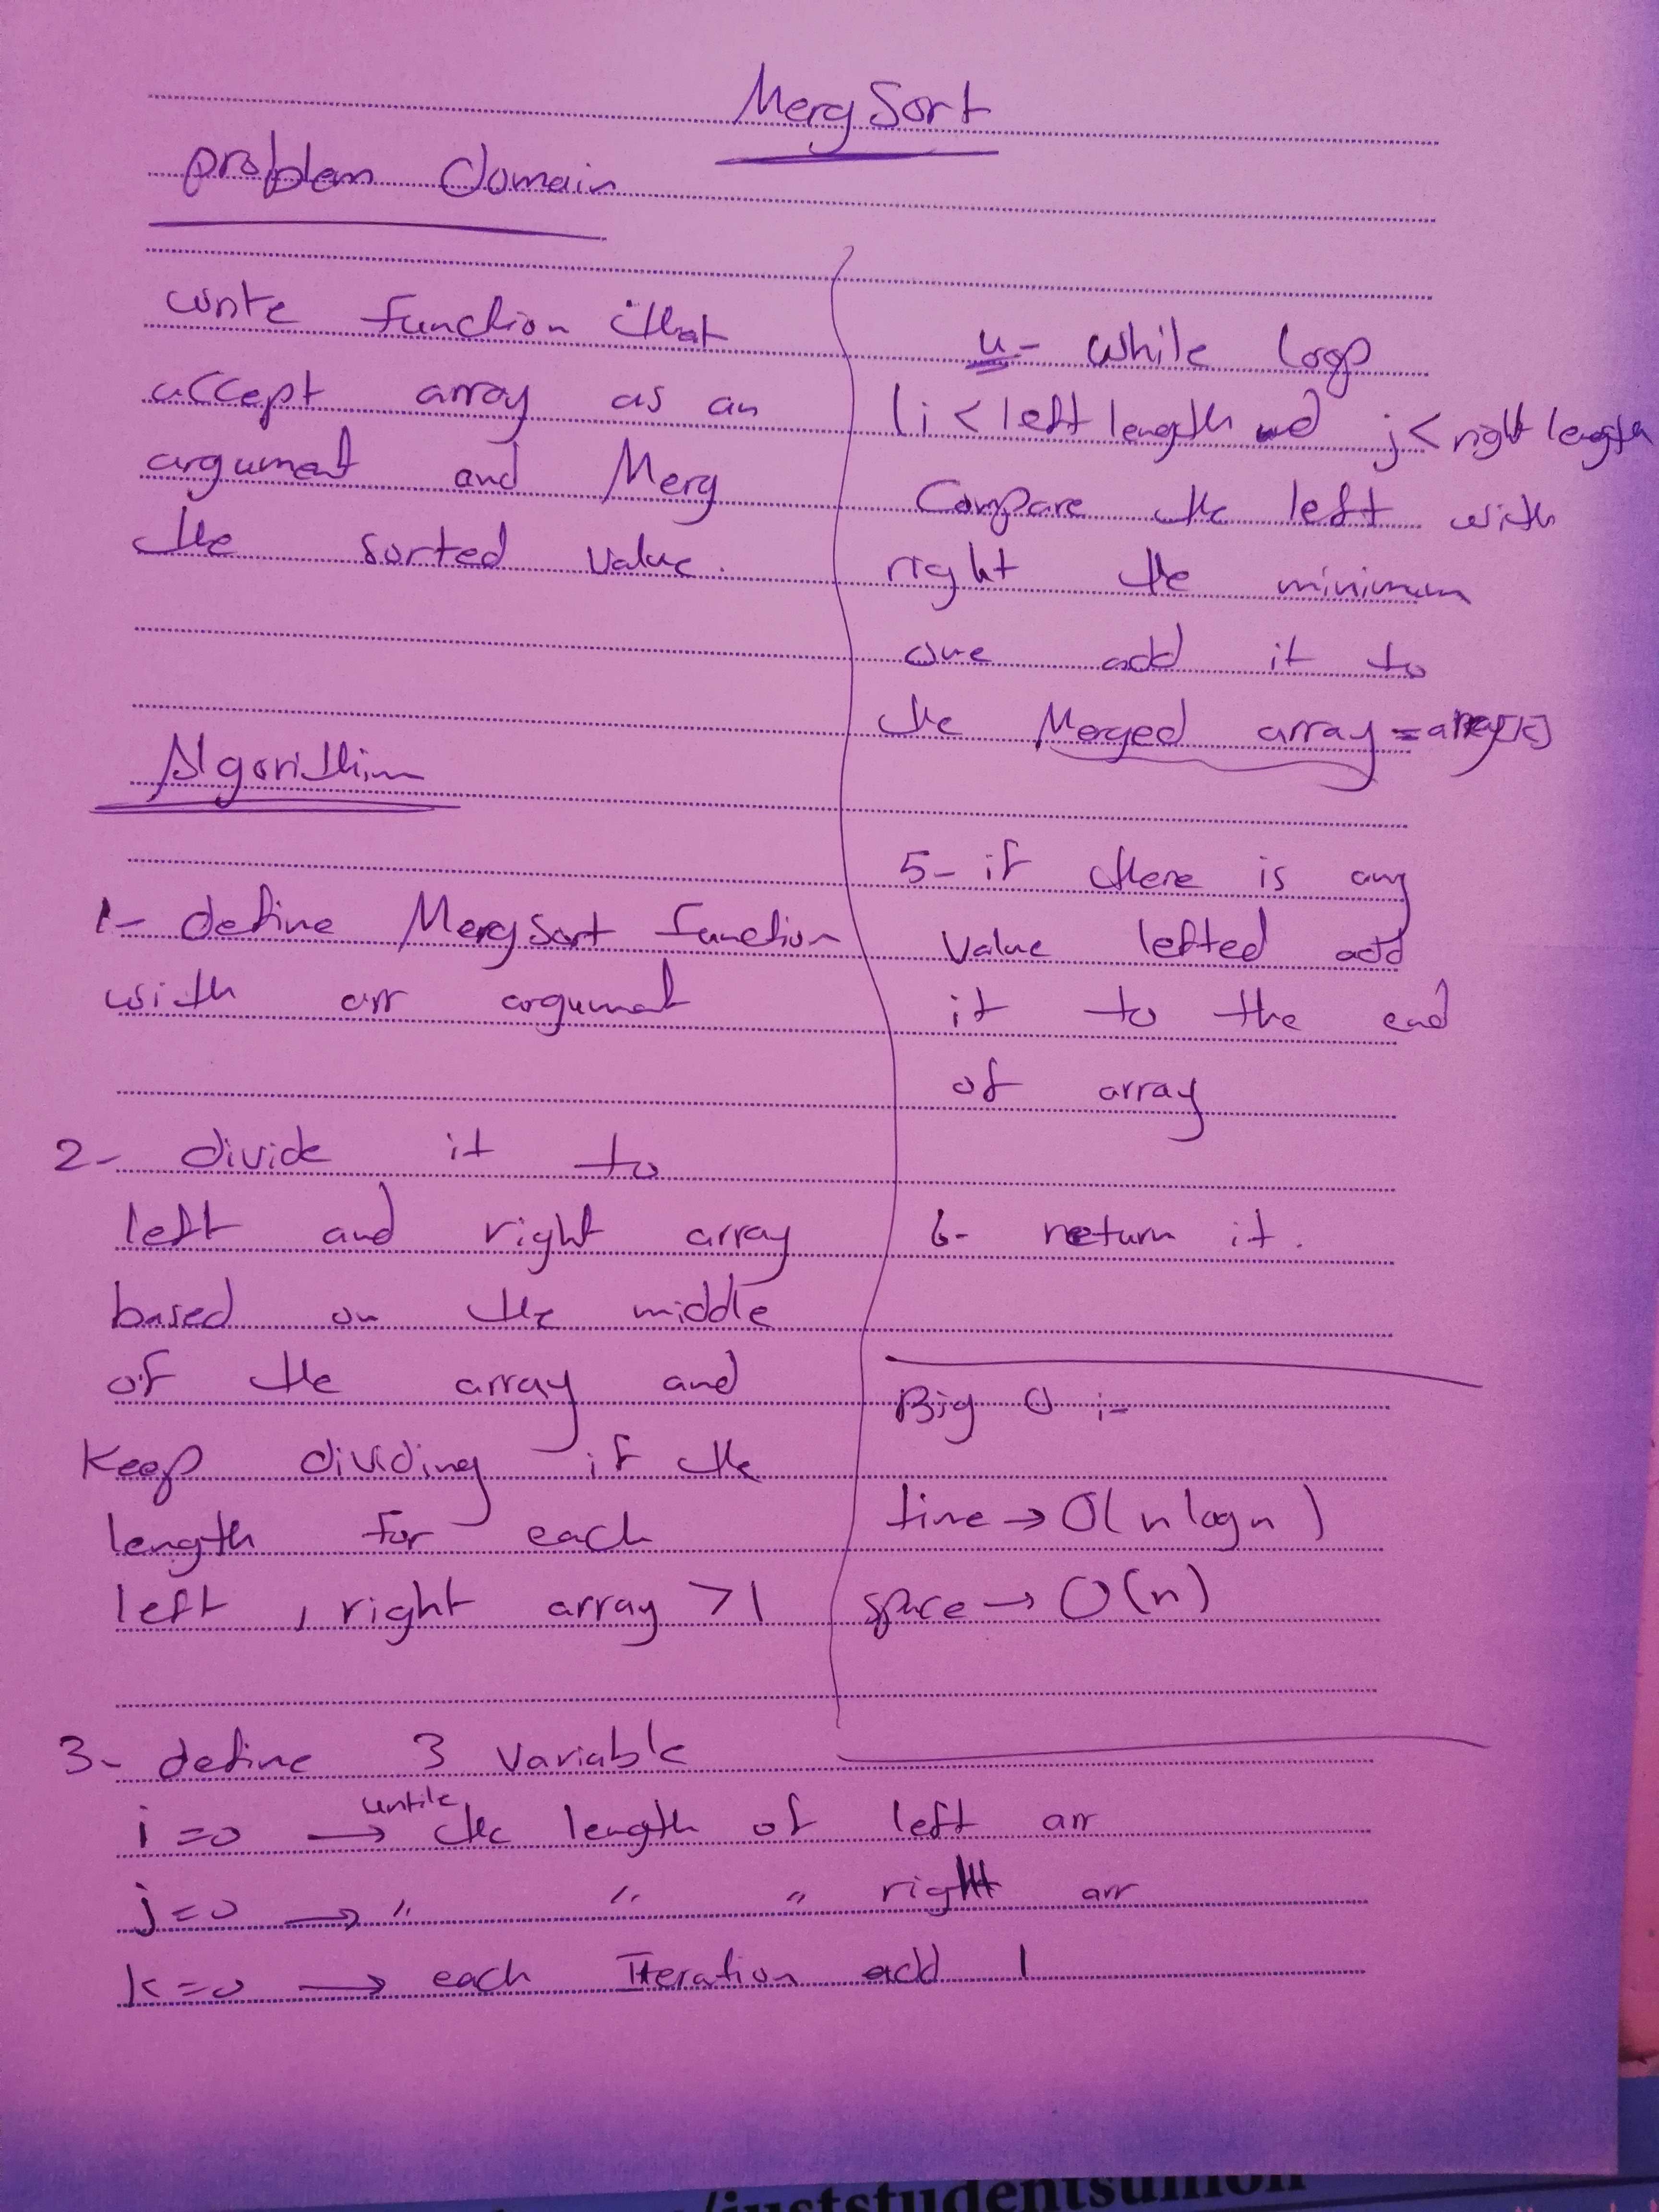 Merg Sort
problem domain
write function that
accept array as an
argument and Merg
the sorted value.
Algorithim
1- define Merg Sort function
with arr argument
2- divide it to
left and right array
based on the middle
of the array and
Keep dividing if the
length for each
left , right array >1
3- define 3 variable
i=0 → untile the length of left arr
j=0 → " " " right arr
k=0 → each Iteration add 1
4- while loop
(i < left length and j < right length
Compare the left with
right the minimum
one add it to
the Merged array = array[k]
5- if there is any
value lefted add
it to the end
of array
6- return it.
Big O :-
time → O(n log n)
space → O(n)
/juststudentsunion